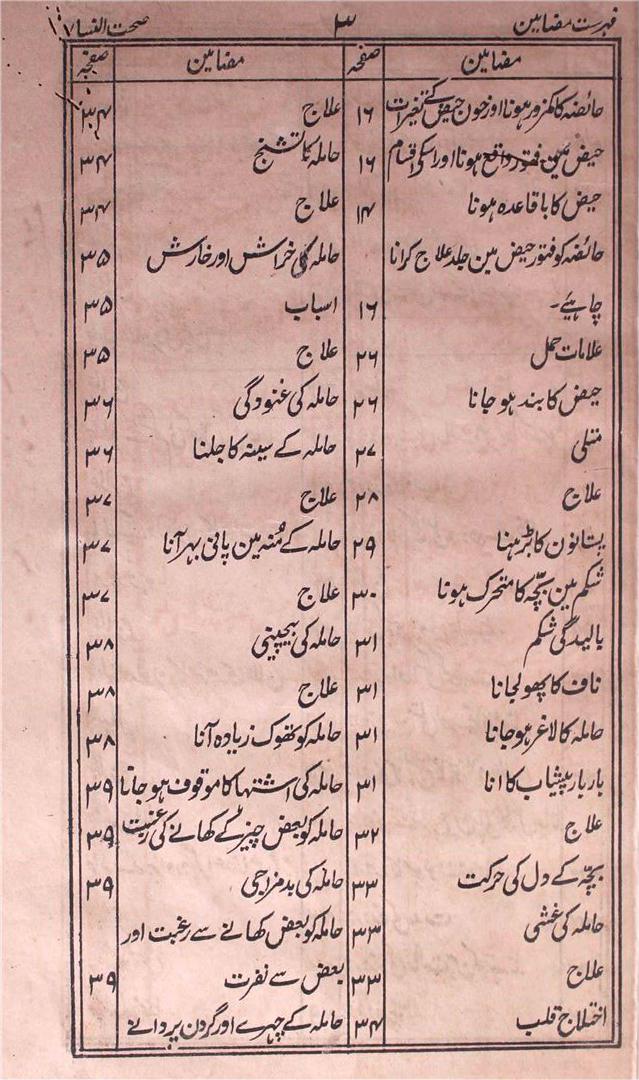 فہرست مضامین ۳ صحت النسا
مضامین صفحہ
حائضہ کا کمزور ہونا اور خون حیض کے تغیرات ۱۶
حیض مین فتور واقع ہونا اور اسکی اقسام ۱۶
حیض کا باقاعدہ ہونا ۱۴
حائضہ کو فتور حیض مین جلد علاج کرانا
چاہیے۔ ۱۶
علامات حمل ۲۶
حیض کا بند ہو جانا ۲۶
متلی ۲۷
علاج ۲۸
پستانون کا بڑہنا ۲۹
شکم مین بچّہ کا متحرک ہونا ۳۰
بالیدگی شکم ۳۱
ناف کا پھولجانا ۳۱
حاملہ کا لاغر ہو جانا ۳۱
بار بار پیشاب کا انا ۳۱
علاج ۳۲
بچّہ کے دل کی حرکت ۳۳
حاملہ کی غشی ۳۳
علاج ۳۳
اختلاج قلب ۳۴
مضامین صفحہ
علاج ۳۴
حاملہ کا تشنج ۳۴
علاج ۳۴
حاملہ کی خراش اور خارش ۳۵
اسباب ۳۵
علاج ۳۵
حاملہ کی غنودگی ۳۶
حاملہ کے سینہ کا جلنا ۳۶
علاج ۳۷
حاملہ کے مُنہ مین پانی بہر آنا ۳۷
علاج ۳۷
حاملہ کی بیچینی ۳۸
علاج ۳۸
حاملہ کو تھوک زیادہ آنا ۳۸
حاملہ کی اشتہا کا موقوف ہو جانا ۳۹
حاملہ کو بعض چیز کے کھانے کی رغبت ۳۹
حاملہ کی بدمزاجی ۳۹
حاملہ کو بعض کھانے سے رغبت اور
بعض سے نفرت ۳۹
حاملہ کے چہرے اور گردن پر دانے